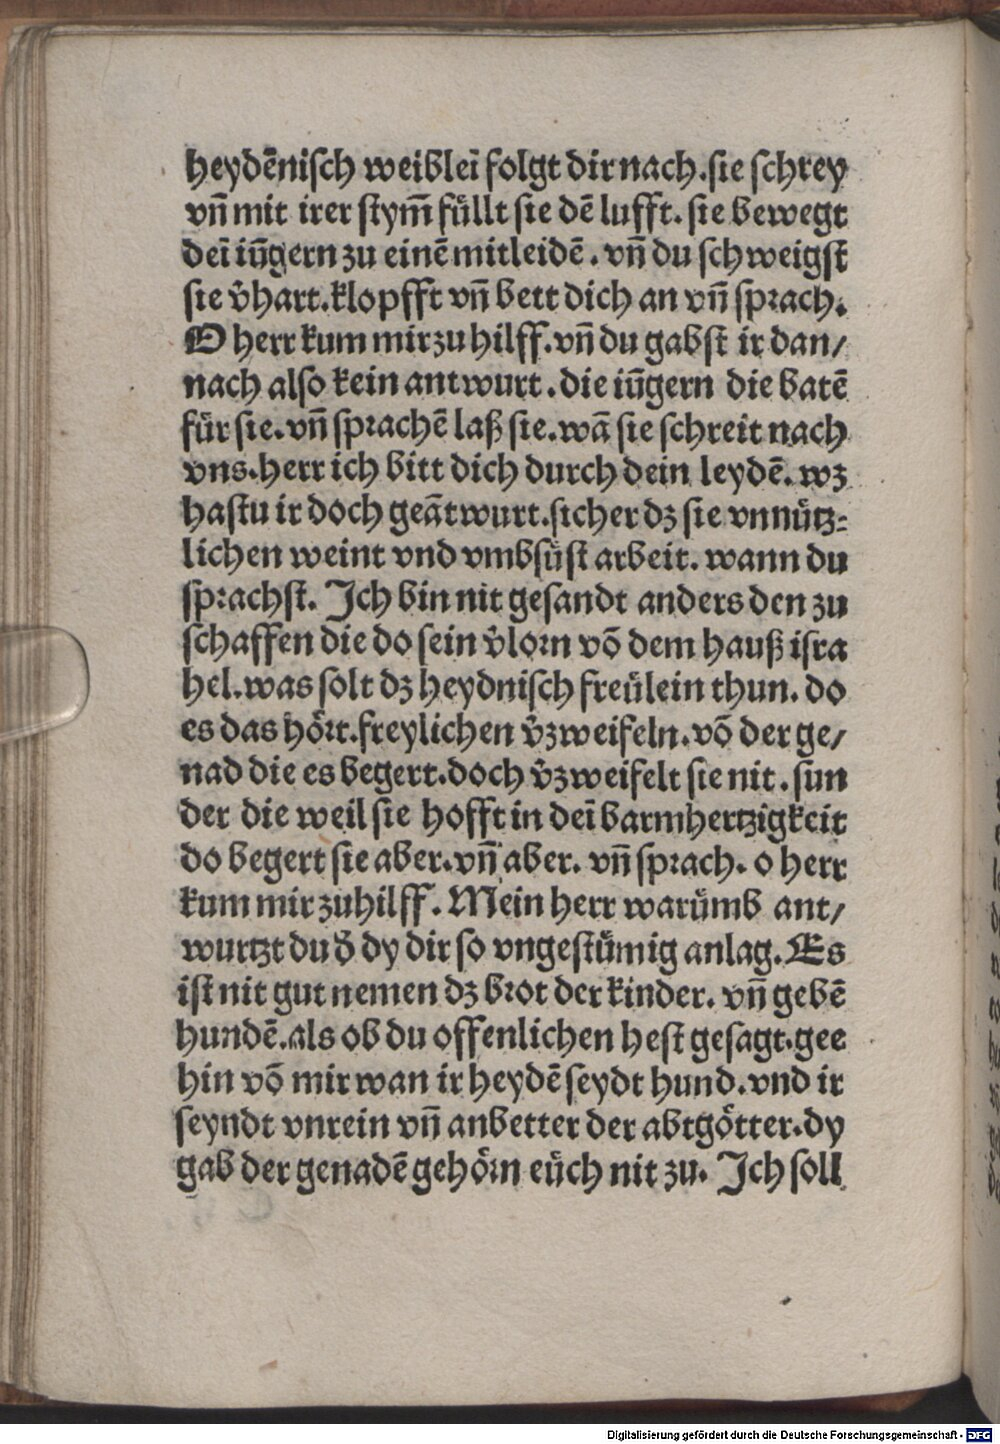 heydēnisch weiblei̅ folgt dir nach.sie schrey
vn̄ mit irer stym̄ fu̎llt sie dē lufft. sie bewegt
dei̅ iu̅gern zu einē mitleidē. vn̄ du schweigst
sie v̾hart.klopfft vn̄ bett dich an vn̄ sprach.
O herr kum mir zu hilff.vn̄ du gabst ir dan/
nach also kein antwurt. die iu̅gern die batē
fu̎r sie.vn̄ sprachē laß sie.wā sie schreit nach
vns.herr ich bitt dich durch dein leydē. wz
hastu ir doch geātwurt.sicher dz sie vnnu̎tz-
lichen weint vnd vmbsu̎st arbeit. wann du
sprachst. Ich bin nit gesandt anders den zu
schaffen die do sein v̾lorn vō dem hauß isra
hel.was solt dz heydnisch freu̎lein thun. do
es das ho̎rt.freylichen v̾zweifeln.vō der ge/
nad die es begert.doch v̾zweifelt sie nit. sun
der die weil sie hofft in dei̅ barmhertzigkeit
do begert sie aber.vn̄ aber. vn̄ sprach. o herr
kum mir zu hilff. Mein herr waru̎mb ant/
wurtzt du d̾ dy dir so vngestu̎mig anlag. Es
ist nit gut nemen dz brot der kinder. vn̄ gebē
hundē.als ob du offenlichen hest gesagt.gee
hin vō mir wan ir heydē seydt hund.vnd ir
seyndt vnrein vn̄ anbetter der abtgo̎tter.dy
gab der genadē geho̎rn eu̎ch nit zu. Ich soll
Digitalisierung gefördert durch die Deutsche Forschungsgemeinschaft - DFG